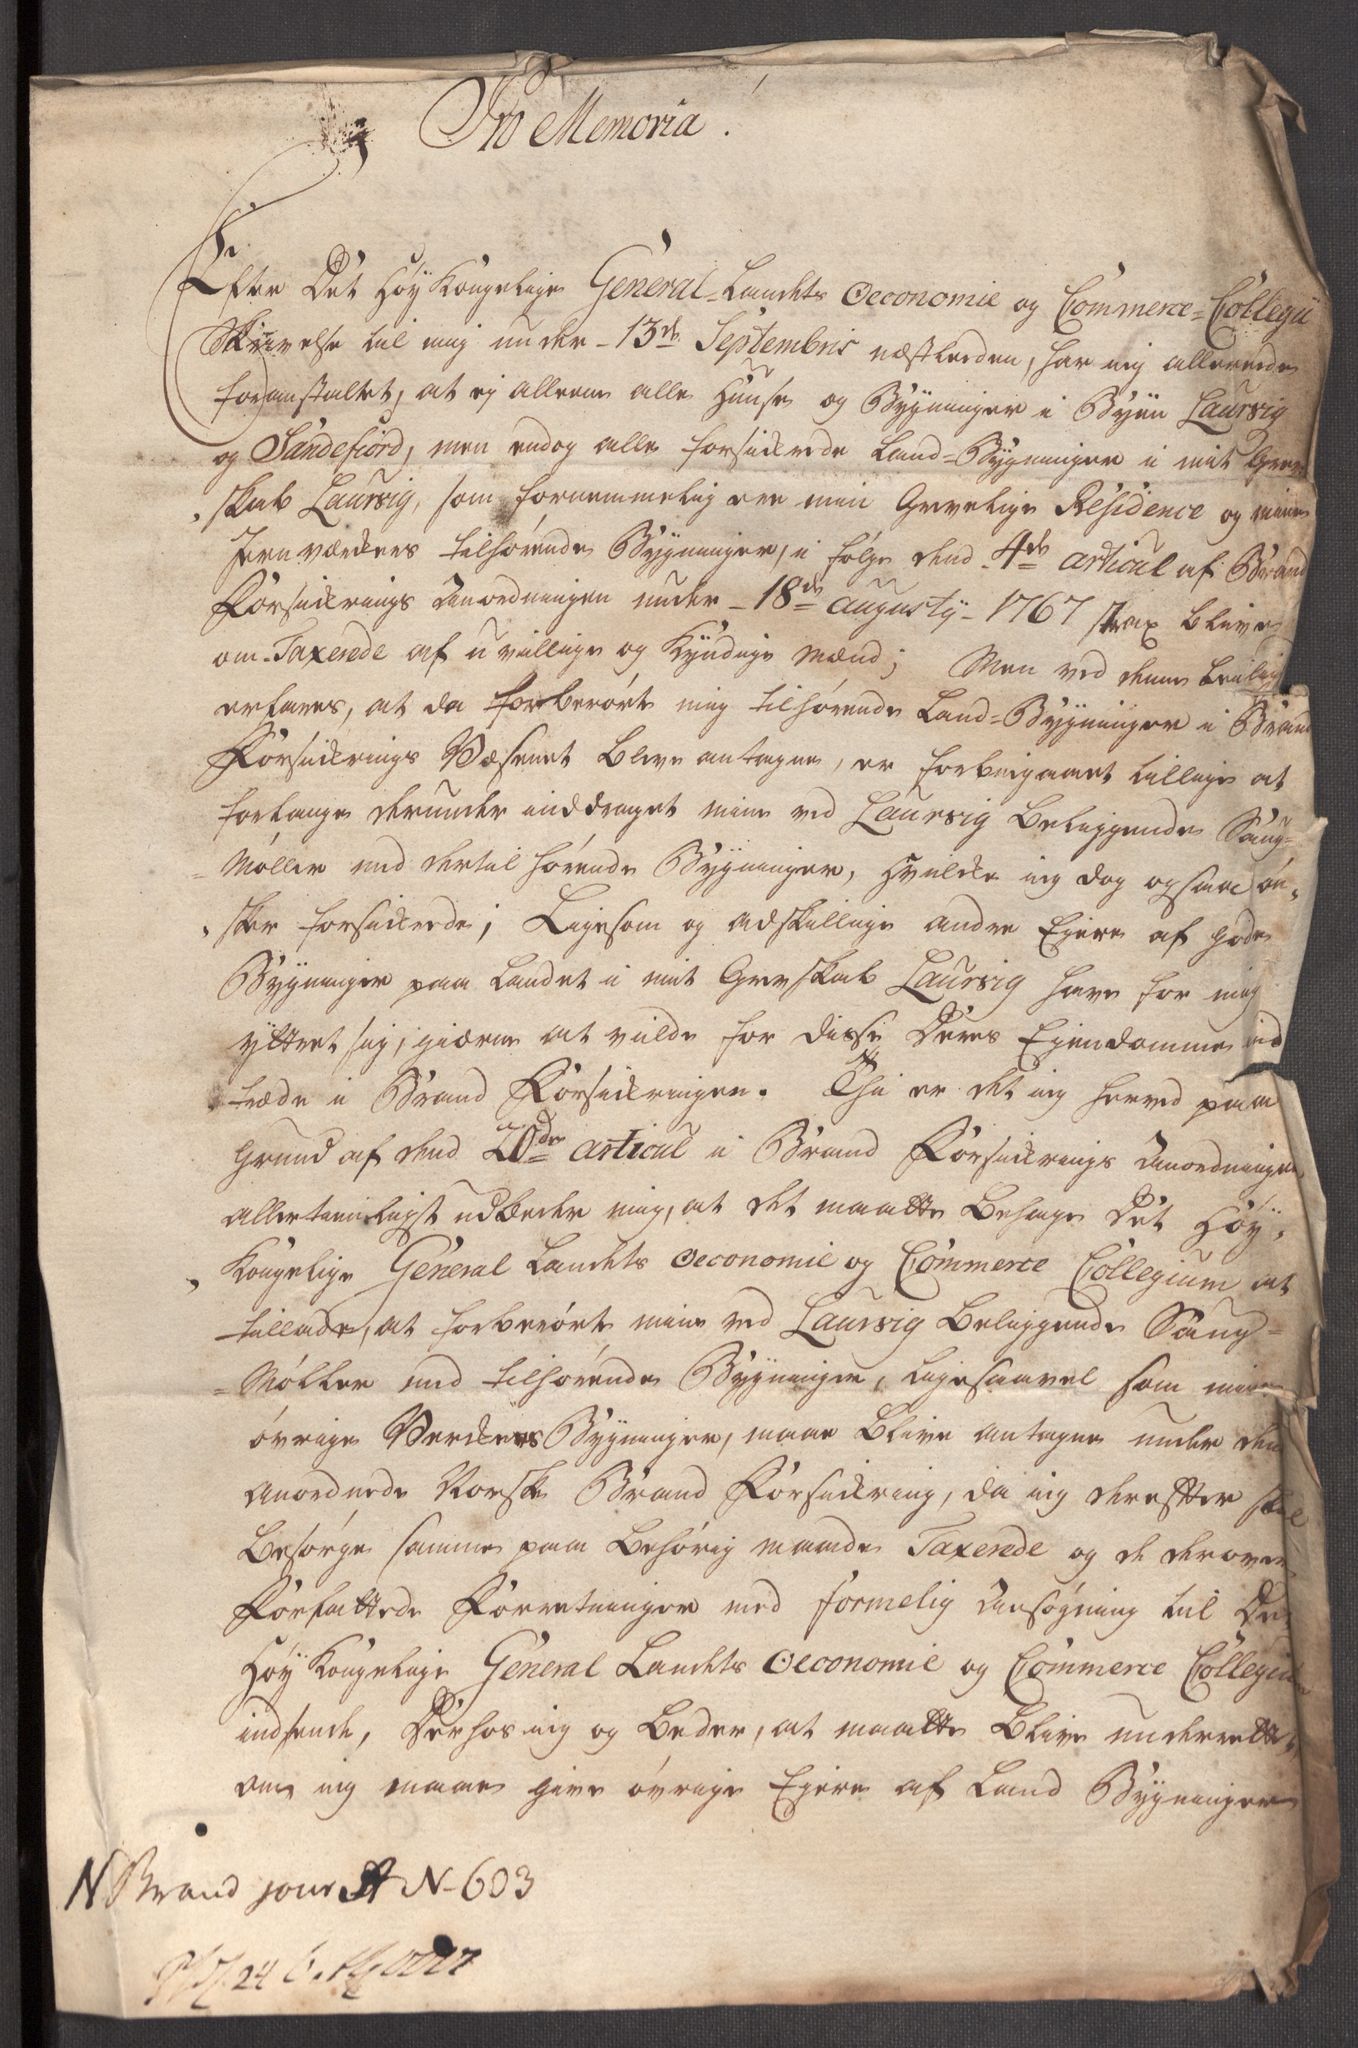 Pro Memoria.
Efter Det Høy Kongelige General-Landets Oeconomie og Commerce-Collegii
Skrivelse til mig under 13de Septembris næstleeden, har jeg allereede
foranstaltet, at ej alleene alle Huuse og Bygninger i Byen Laurvig
og Sandefiord, men endog alle forsickrede Land-Bygninger i mit Grev-
skab Laurvig, som fornemmelig ere min Grevelige Residence og mine
Jernværckers tilhørende Bygninger, i følge dend 4de Articul af Brand
Forsickrings Anordningen under 18de Augusty 1767 strax blive
om-Taxerede af uvillige og Kyndige Mænd; Men ved denne Leilig
erfares, at da forberørte mig tilhørende Land-Bygninger i Brand
Forsickrings Væsenet bleve antagne, er forbeigaaet tillige at
forlange derunder inddraget mine ved Laurvig beliggende Saug-
Møller med dertil hørende Bygninger, hvilcke jeg dog ogsaa ön-
sker forsickrede; Ligesom og adskillige andre Eyere af gode
Bygninger paa Landet i mit Grevskab Laurvig have for mig
yttret sig, gierne at vilde for disse Deres Eyendomme ind
træde i Brand Forsickringen. Thi er det jeg herved paa
Grund af dend 20de Articul i Brand Forsickrings Anordningen
allertienligst udbeder mig, at det maatte behage Det Høy-
Kongelige General Landets Oeconomie og Commerce Collegium at
tillade, at forberørte mine ved Laurvig beliggende Saug-
Møller med tilhørende Bygninger, ligesaavel som mine
øvrige Verckers Bygninger, maae blive antagne under den
anordnede Norske Brand Forsickring, da jeg derefter skal
besørge samme paa behørig maade Taxerede og de derover
Forfattede Forretninger med formelig Ansøgning til De
Høy Kongelige General Landets Oeconomie og Commerce Collegiu
indsende, Derhos jeg og beder, at maatte blive underrette
om jeg maae give øvrige Eyere af Land Bygninger
N Brand jour A N-603